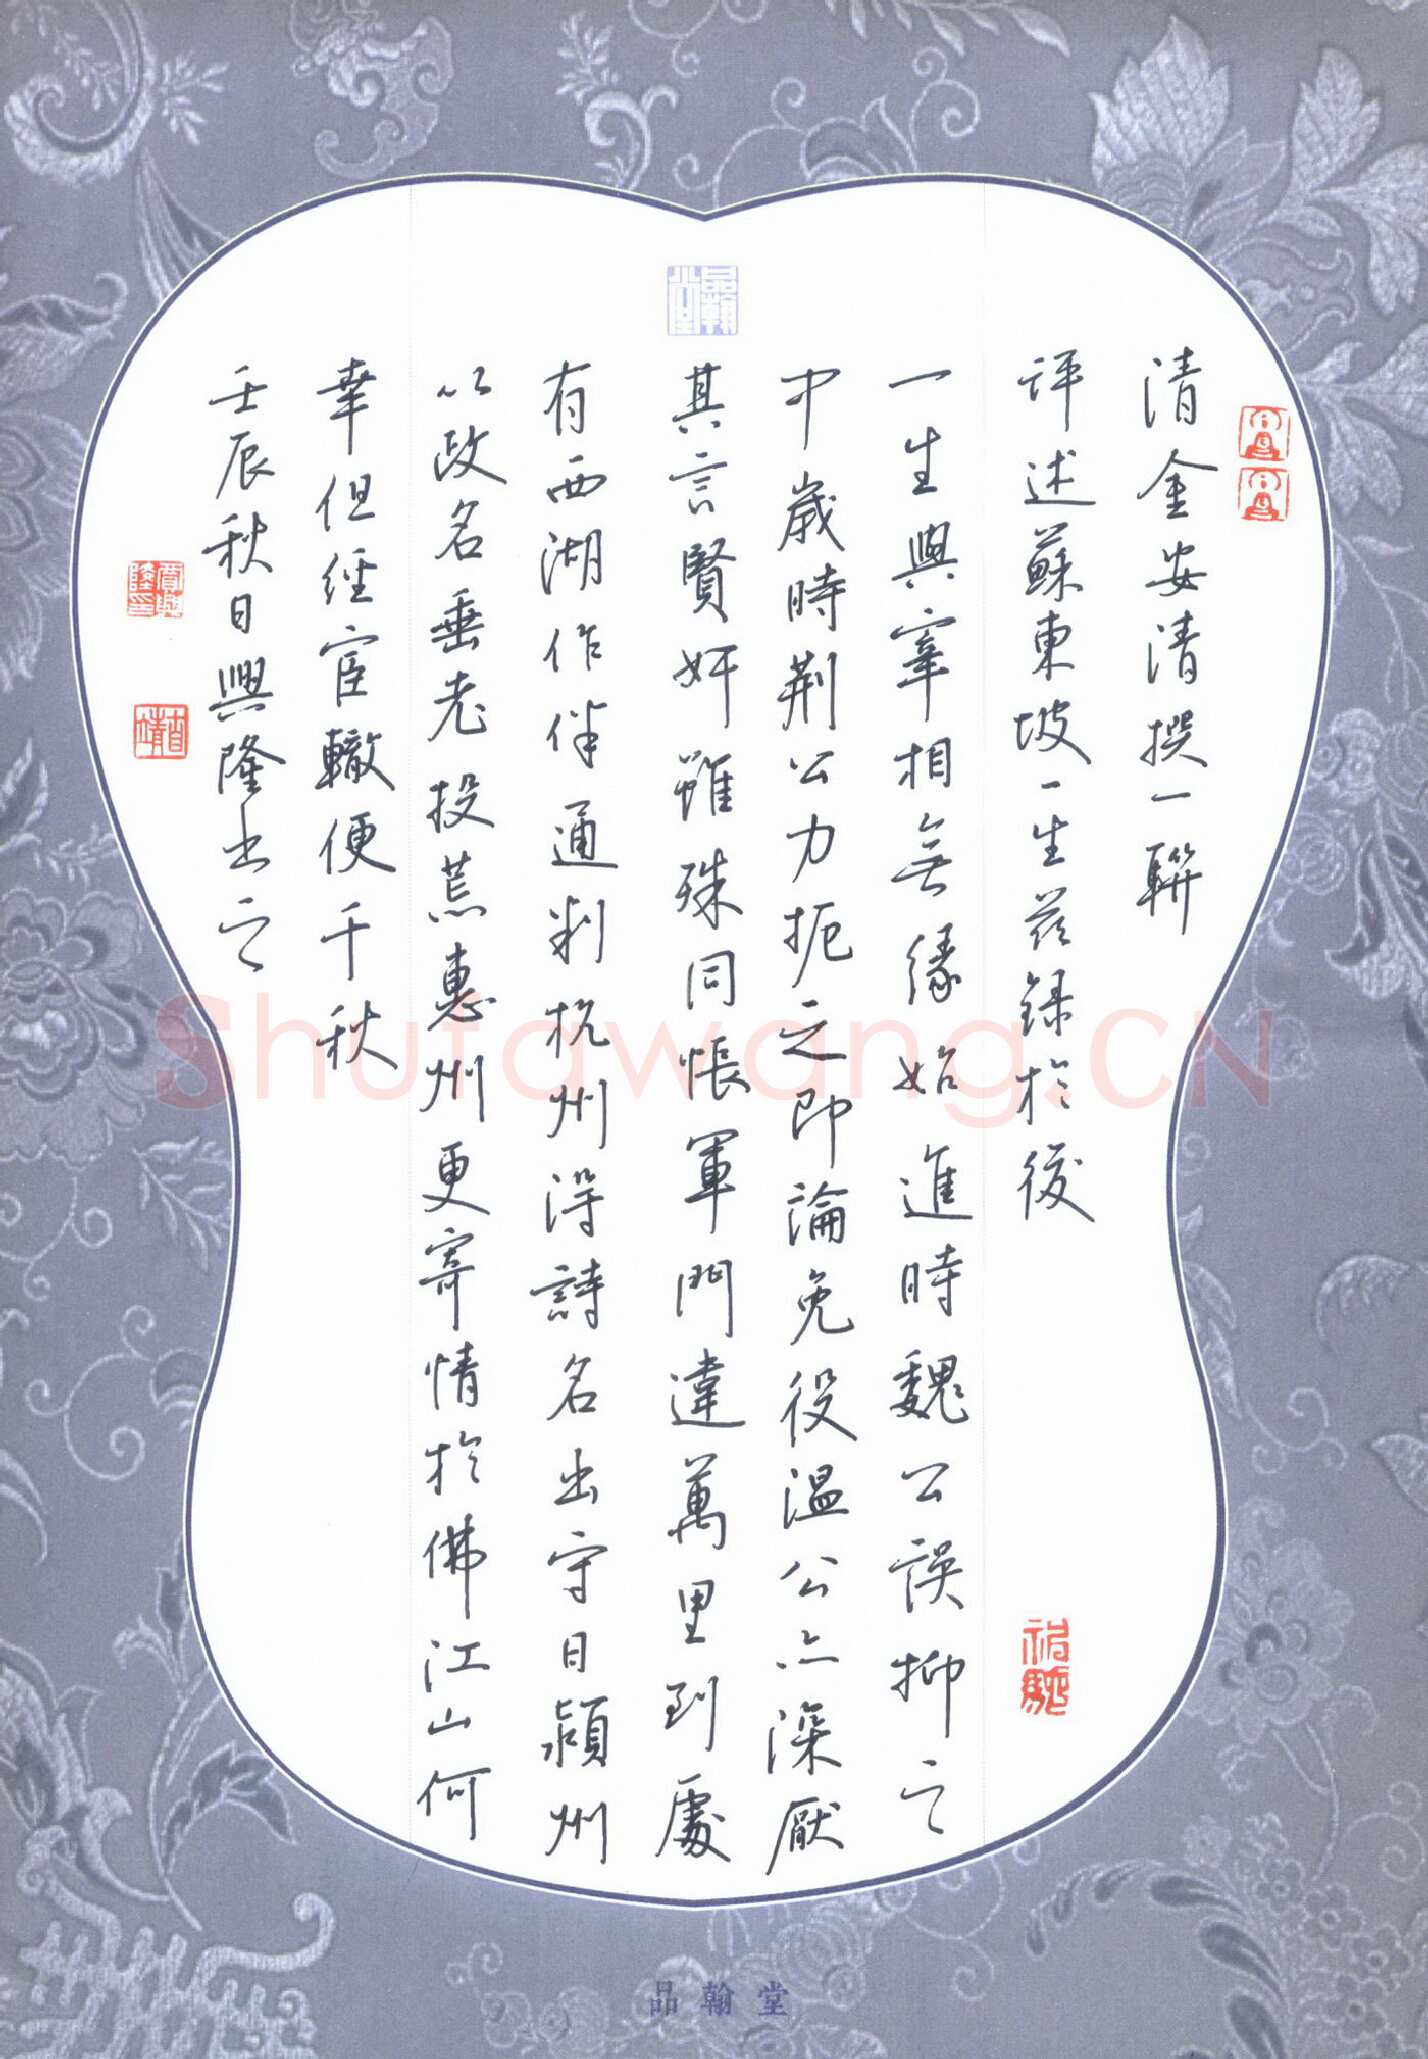 清金安清撰一聯
評述蘇東坡一生茲録於後
一生與宰相無緣始進時魏公誤抑之
中歲時荆公力扼之即論免役温公亦深厭
其言賢奸雖殊同悵軍門違萬里到處
有西湖作伴通判杭州得詩名出守日潁州
以政名垂老投荒惠州更寄情於佛江山何
幸但經宦轍便千秋
壬辰秋日興隆书之
品翰堂
品翰堂
Shufawang.CN